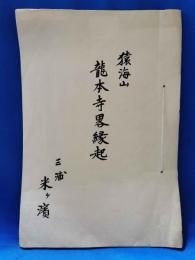 猿海山
龍本寺畧縁起
三浦
米ヶ濱